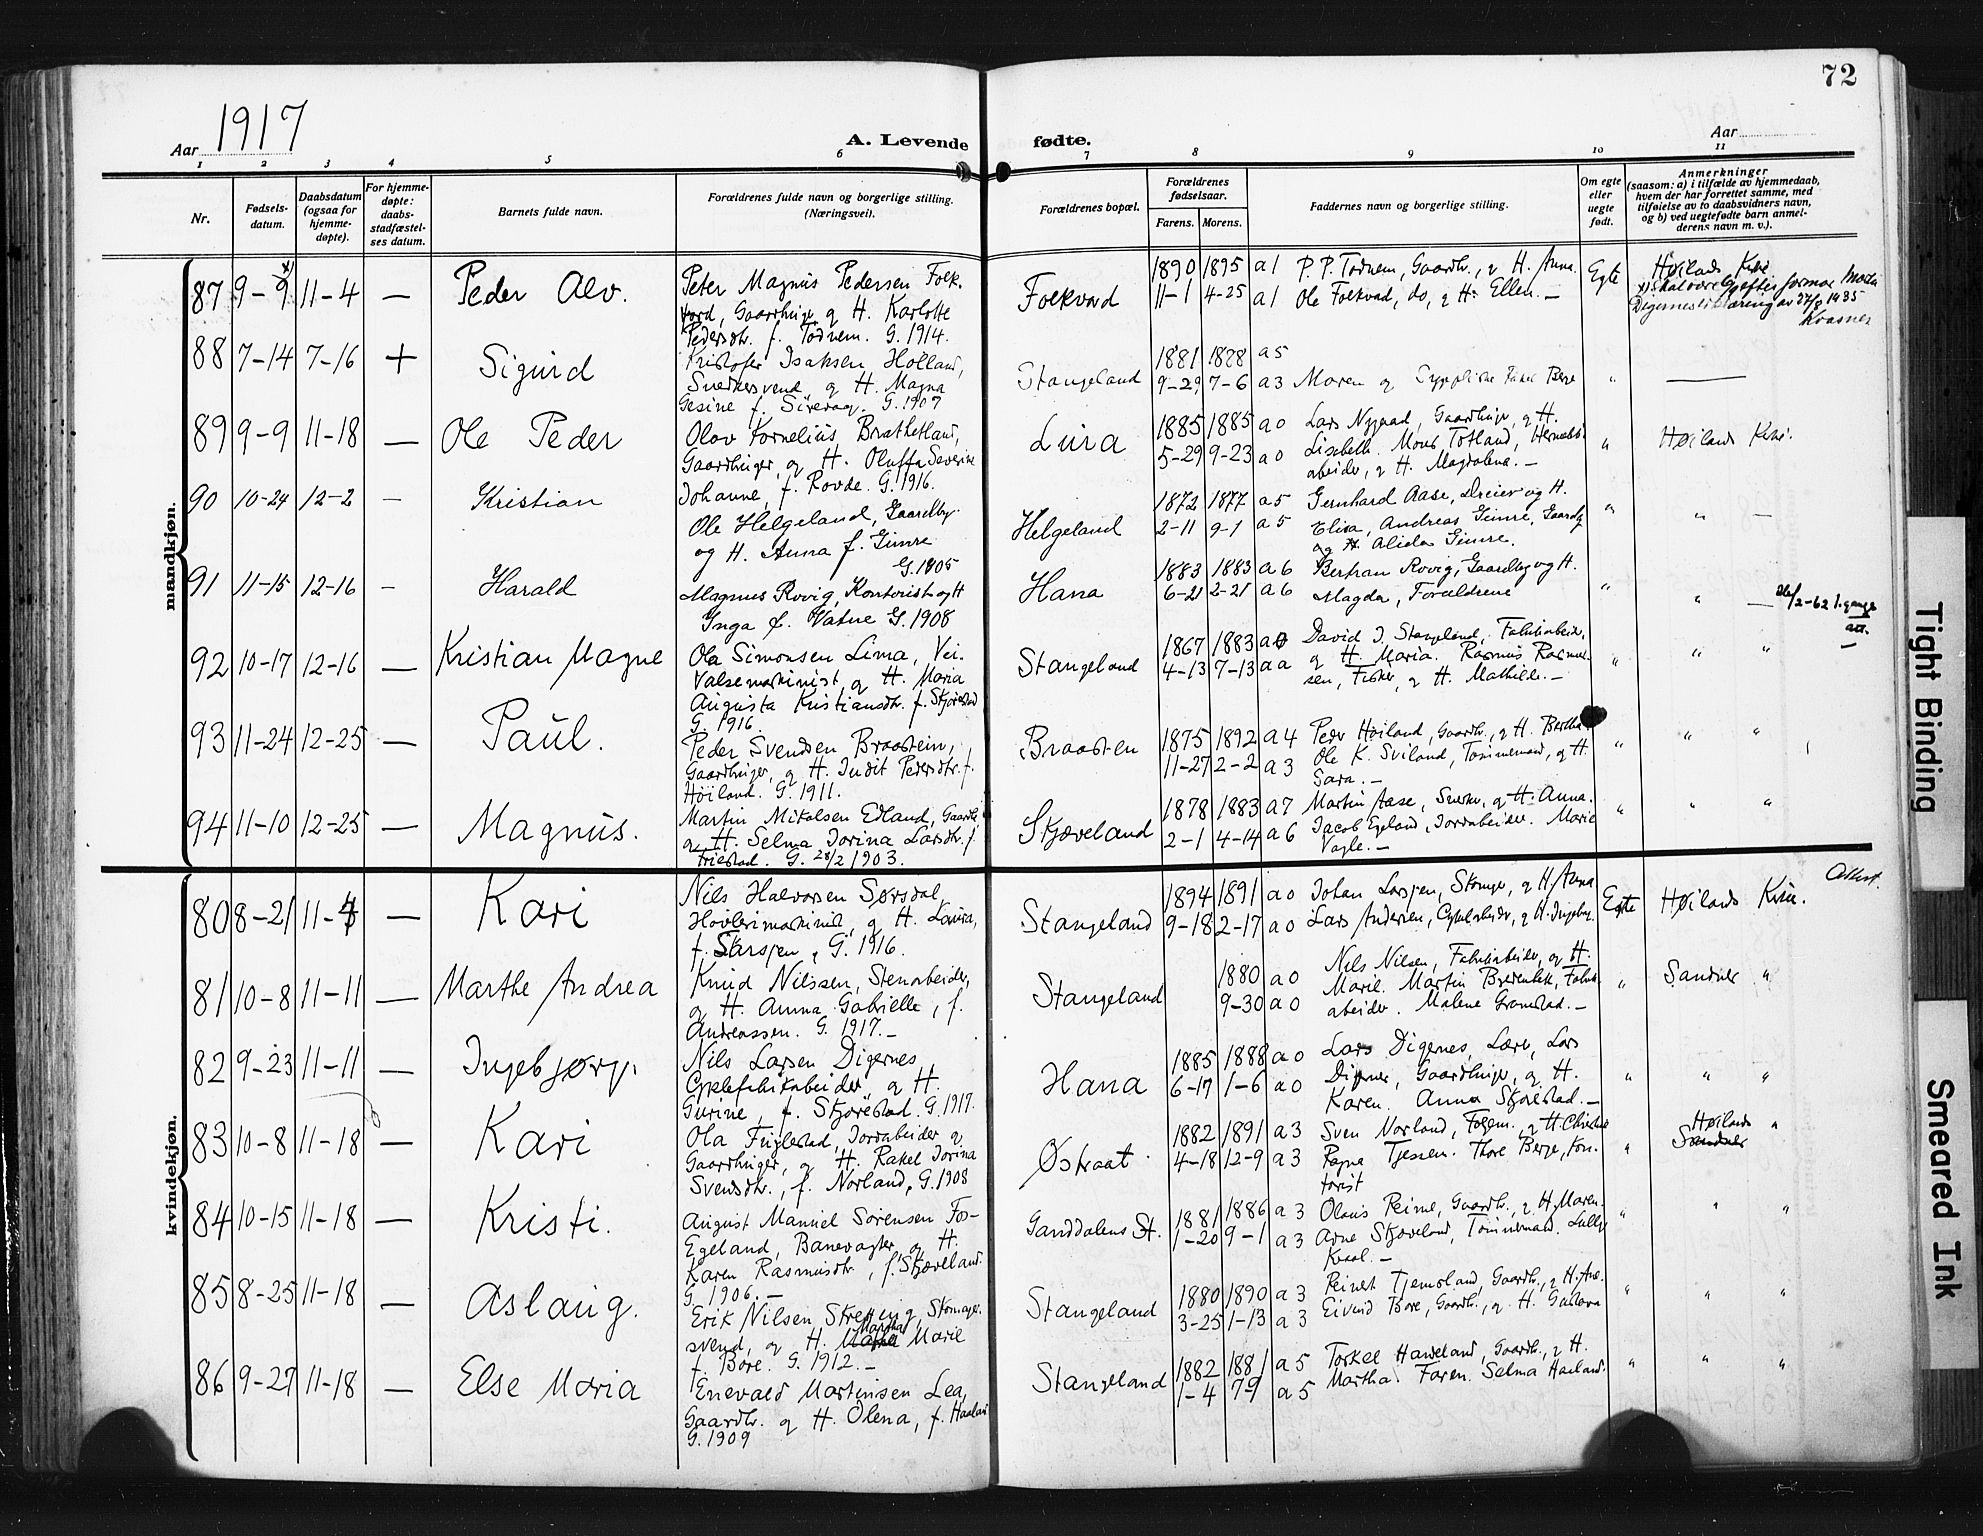 72
Aar 1917
A. Levende fødte.
Aar
1 2 3 4 5 6 7 8 9 10 11
Nr.
Fødsels-
datum.
Daabsdatum
(ogsaa for
hjemme-
døpte).
For hjemme-
døpte:
daabs-
stadfæstel-
ses datum.
Barnets fulde navn.
Forældrenes fulde navn og borgerlige stilling.
(Næringsvei).
Forældrenes bopæl.
Forældrenes
fødselsaar.
Farens. Morens.
Faddernes navn og borgerlige stilling.
Om egte
eller
uegte
født.
Anmerkninger
(saasom: a) i tilfælde av hjemmedaab,
hvem der har forrettet samme, med
tilføielse av to daabsvidners navn,
og b) ved uegtefødte barn anmel-
derens navn m. v.).
mandkjøn.
87 9-9 x) 11-4 — Peder Alv.
Peter Magnus Pedersen Folk-
vord, Gaardbruger og H. Karlotte
Pedersdtr. f. Todnem. G. 1914.
Folkvord
1890 1895 a 1 P. P. Todnem, Gaardbr., og H. Anna.
11-1 4-25 a 1 Ole Folkvord, do, og H. Ellen. —
Egte
Høilands Kirke
88 7-14 7-16 + Sigurd
Kristofer Isaksen Holland,
Snedkersvend og H. Magna
Gesine f. Sirevaag. G. 1907
Stangeland
1881 1828 a 5
9-29 7-6 a 3 Moren og
" —
89 9-9 11-18 — Ole Peder
Olav Kornelius Brathetland,
Gaardbruger, og H. Oluffa Severine
Johanne, f. Rovde. G. 1916.
Lura
1885 1885 a 0 Lars Nygaard, Gaardbruger, og H.
5-29 9-23 a 0 Lisabeth. Mons Totland,
arbeider, og H. Magdalena. —
" Høilands Kirke.
90 10-24 12-2 — Kristian
Ole Helgeland, Gaardbg.
og H. Anna f. Gimre
G. 1905
Helgeland
1872 1877 a 5 Gernhard Aase, Dreier og H.
2-11 9-1 a 5 Elisa, Andreas Gimre, Gaardbg
og H. Alida Gimre.
" " —
91 11-15 12-16 — Harald
Magnus Rovig, Kontorist og H
Inga f. Vatne G. 1908
Hana
1883 1883 a 6 Bertran Rovig, Gaardbg og H.
6-21 2-21 a 6 Magda, Forældrene
" " —
92 10-17 12-16 — Kristian Magne
Ola Simonsen Lima, Vei-
valsemaskinist, og H. Maria
Augusta Kristiansdtr. f. Skjørestad
G. 1916.
Stangeland
1867 1883 a 0 David J. Stangeland, Fabrikarbeider,
4-13 7-13 a a og H. Maria. Rasmus Rasmus-
sen, Fisker, og H. Mathilde. —
" " "
93 11-24 12-25 — Paul.
Peder Svendsen Braastein,
Gaardbruger, og H. Judit Pedersdtr. f.
Høiland. G. 1911.
Braasten
1875 1892 a 4 Peder Høiland, Gaardbr., og H. Bertha
11-27 2-2 a 3 Ole K. Sviland, Tømmermand, og H.
Sara. —
" " "
94 11-10 12-25 — Magnus.
Martin Mikalsen Edland, Gaardbr.
og H. Selma Jorina Larsdtr. f.
Friestad. G. 28/2 1903.
Skjæveland
1878 1883 a 7 Martin Aase, Snedker, og H. Anna.
2-1 4-14 a 6 Jacob Egeland, Jordarbeider. Marie
Vagle. —
" " "
kvindekjøn.
80 8-21 11-4 — Kari
Nils Halvorsen Sørsdal,
Høvlerimaskinist, og H. Laura,
f. Larsen, G. 1916.
Stangeland
1894 1891 a 0 Johan Larsen, Skomager, og H. Anna
9-18 2-17 a 0 Lars Andersen, Cykelarbeider, og H. Ingeborg.
Egte Høilands Kirke. Attest.
81 10-8 11-11 — Marthe Andrea
Knud Nilssen, Stenarbeider,
og H. Anna Gabrielle, f.
Andreassen. G. 1917. —
Stangeland
1880 a 0 Nils Nilsen, Fabrikarbeider, og H.
9-30 a 0 Marie. Martin Bredenbek, Fabrik-
arbeider. Malene Gramstad. —
" Sandnes "
82 9-23 11-11 — Ingebjørg.
Nils Larsen Digernes
Cyklefabrikarbeider, og H.
Gurine, f. Skjørestad. G. 1917.
Hana
1885 1888 a 0 Lars Digernes, Lærer, Lars
6-17 1-6 a 0 Digernes, Gaardbruger, og H.
Karen. Anna Skjørestad. —
" " "
83 10-8 11-18 — Kari
Ola Fuglestad, Jordarbeider og
Gaardbruger, og H. Rakel Jorina
Svensdtr., f. Norland, G. 1908
Østraat
1882 1891 a 3 Sven Norland, og H. Christine
4-18 12-9 a 3 Ragna Tjessem. Thore Berge, Kon-
torist
" Høilands Sandnes "
84 10-15 11-18 — Kristi.
August Manuel Sørensen Fos-
Egeland, Banevogter, og H.
Karen Rasmusdtr., f. Skjæveland.
G. 1906. —
Ganddalens St.
1881 1886 a 3 Olaus Reime, Gaardbr., og H. Maren.
1-20 9-1 a 3 Arne Skjæveland, Tømmermand.
" " "
85 8-25 11-18 — Aslaug.
Erik Nilsen Stretting, Skomager-
svend, og H. Martha Marie
f. Bore. G. 1912. —
Stangeland
1880 1890 a 3 Reinert Tjemsland, Gaardbr., og H. Ane.
3-25 1-13 a 3 Eivind Bore, Gaardbr., og H. Gustava
" " "
86 9-27 11-18 — Else Maria
Enevald Martinsen Lea,
Gaardbr. og H. Olena, f. Haaland
G. 1909
Stangeland
1882 1881 a 5 Torkel Haveland, Gaardbr., og H.
1-4 7-9 a 5 Martha. Faren. Selma Haaland.
" " "
Tight Binding
Smeared Ink